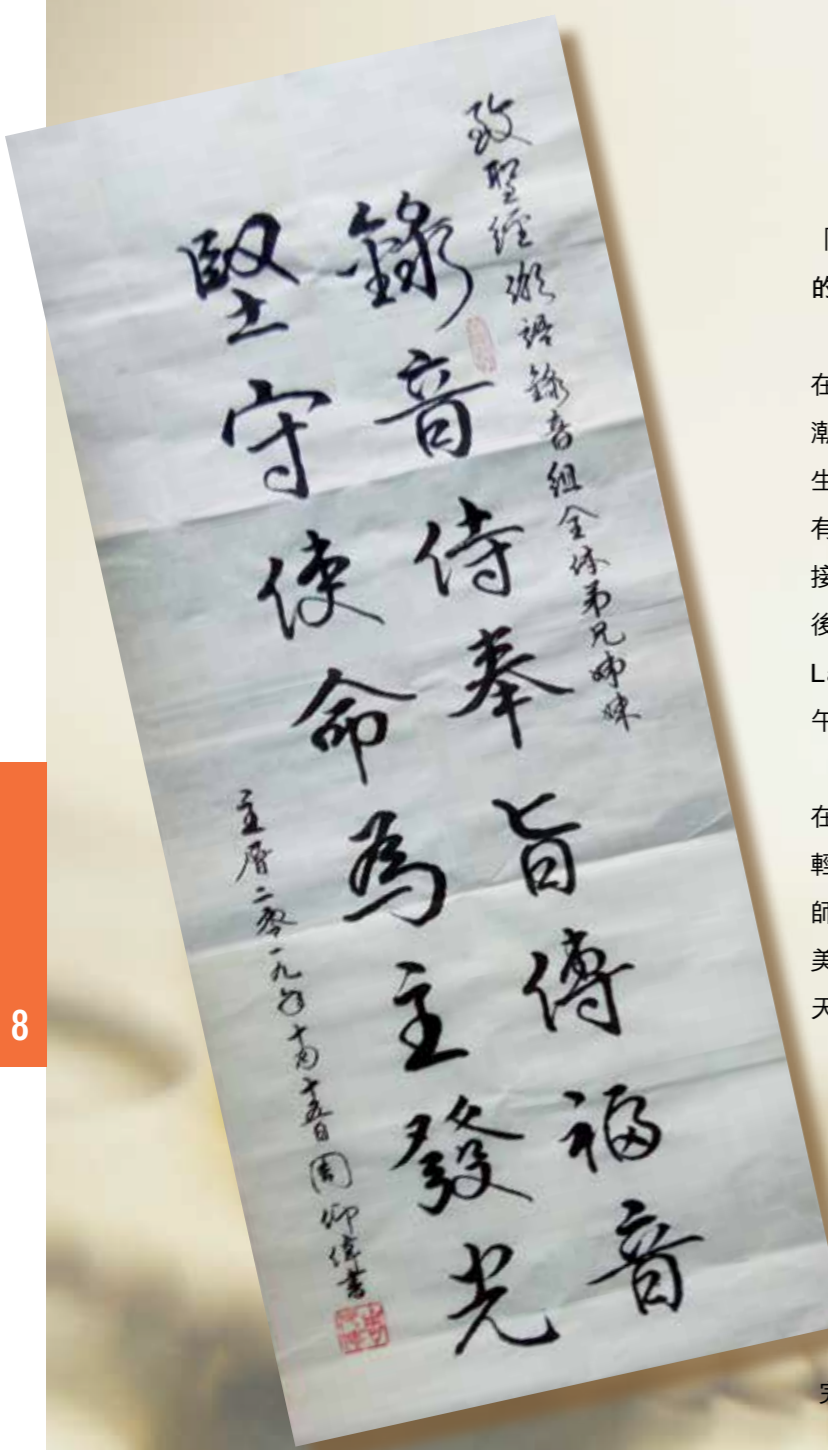 致聖經潮語錄音組全体弟兄姊妹
錄音侍奉旨傳福音
堅守使命為主發光
主曆二零一九年十月十五日周仰偉書
「
的
在
潮
生
有
接
後
L
午
在
輕
師
美
天
8